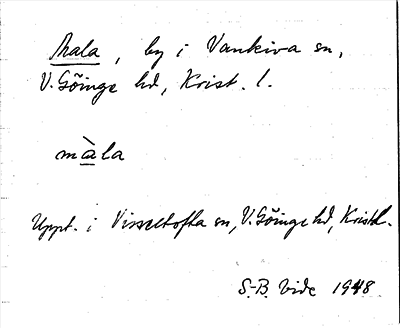 Mala, by i Vankiva sn,
V. Göinge hd, Krist. l.
màla
Uppt. i Visseltofta sn, V. Göinge hd, Krist.l.
S.-B. Vide 1948